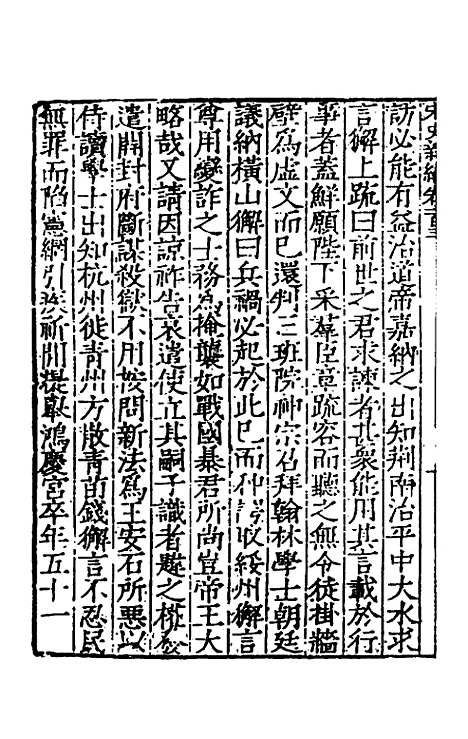 宋史新編卷一百三
訪必能有益治道帝嘉納之出知荆南治平中大水求
言獬上疏曰前世之君求諫者甚衆能用其言載於行
事者蓋鮮願陛下采羣臣章疏容而聽之無令徒掛牆
壁爲虛文而已還判三班院神宗召拜翰林學士朝廷
議納橫山獬曰兵禍必起於此已而种諤收綏州獬言
尊用變詐之士務爲掩襲如戰國暴君所尚豈帝王大
略哉又請因諒祚告哀遣使立其嗣子識者韙之權發
遣開封府斷謀殺獄不用按問新法爲王安石所惡以
侍讀學士出知杭州徙青州方散青苗錢獬言不忍民
無罪而陷憲網引疾祈閒提舉鴻慶宮卒年五十一